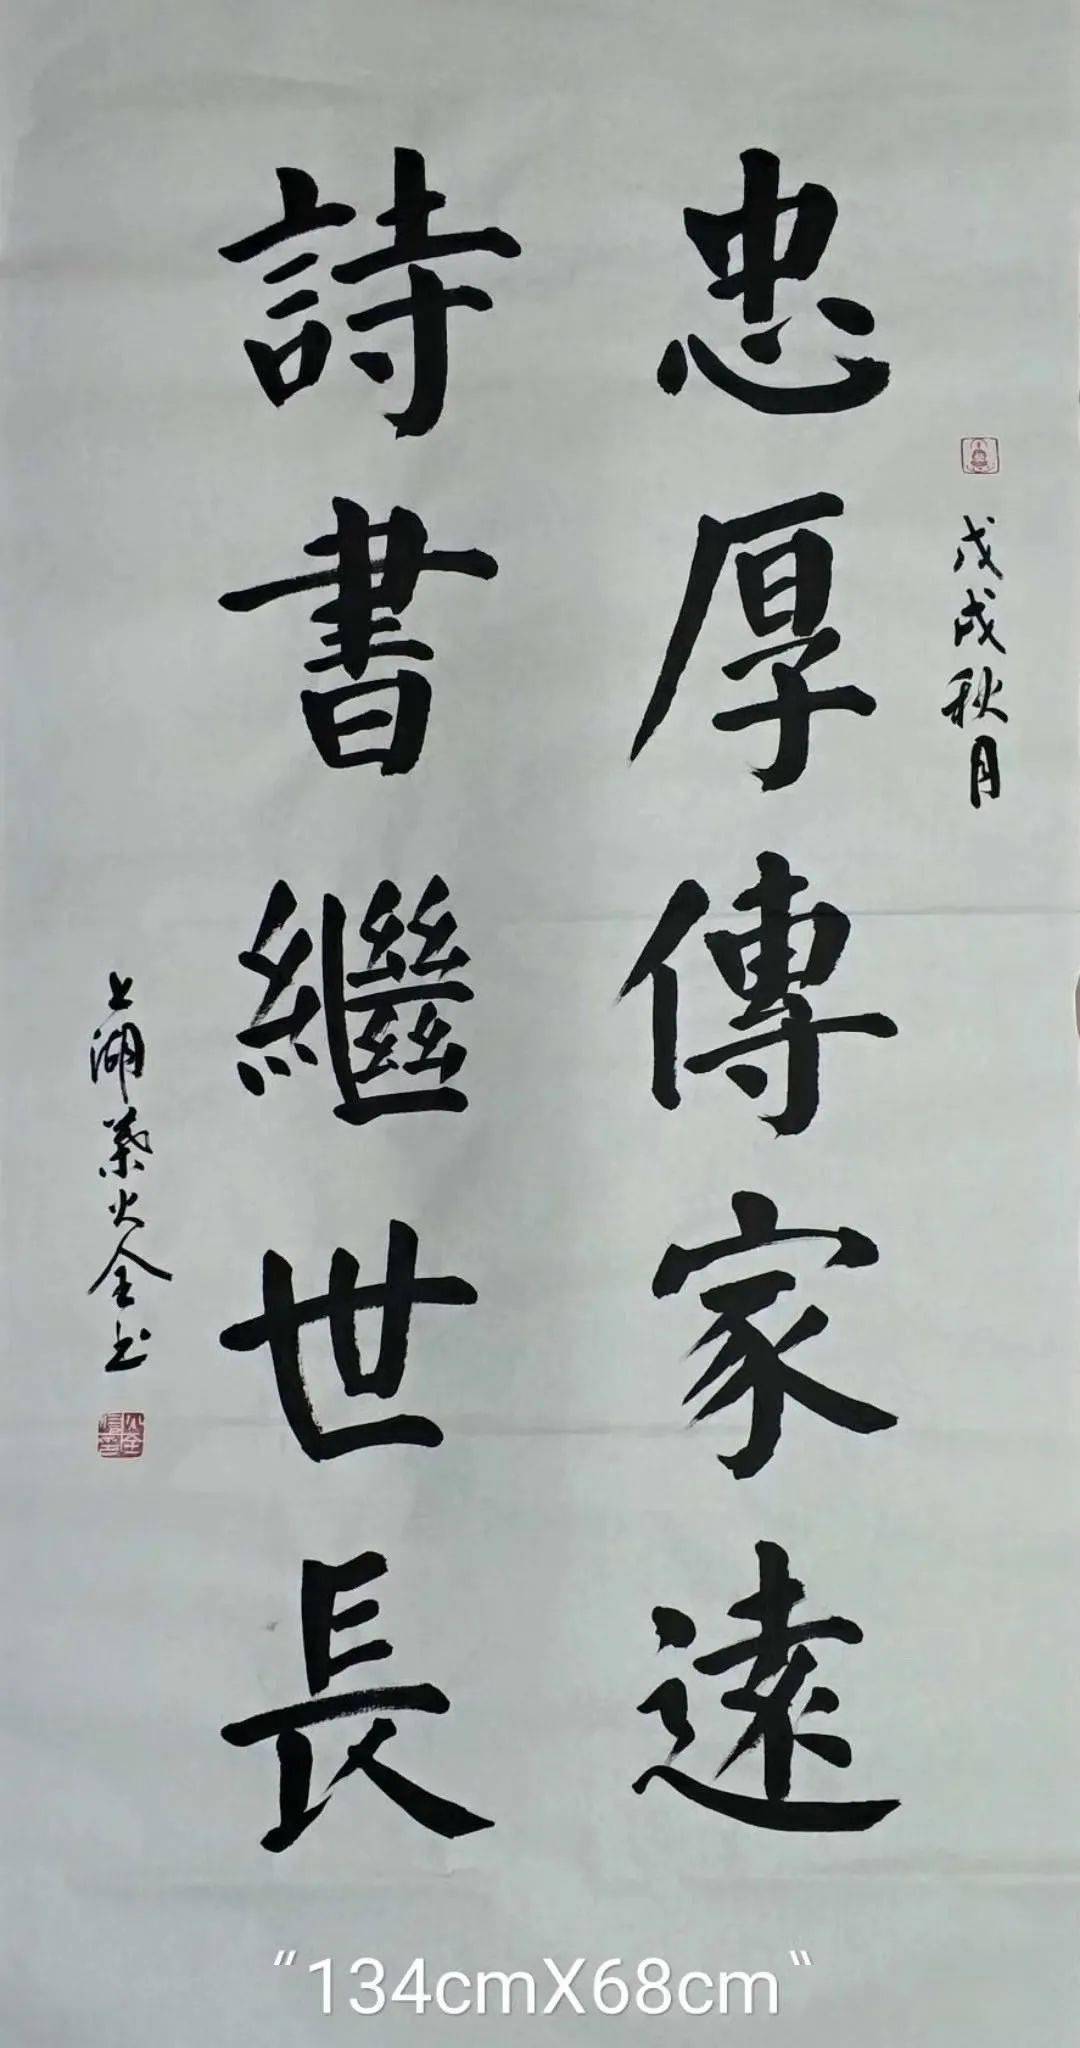 忠厚傳家遠
詩書繼世長
戊戌秋月
上湖葉火全书
"134cmX68cm"